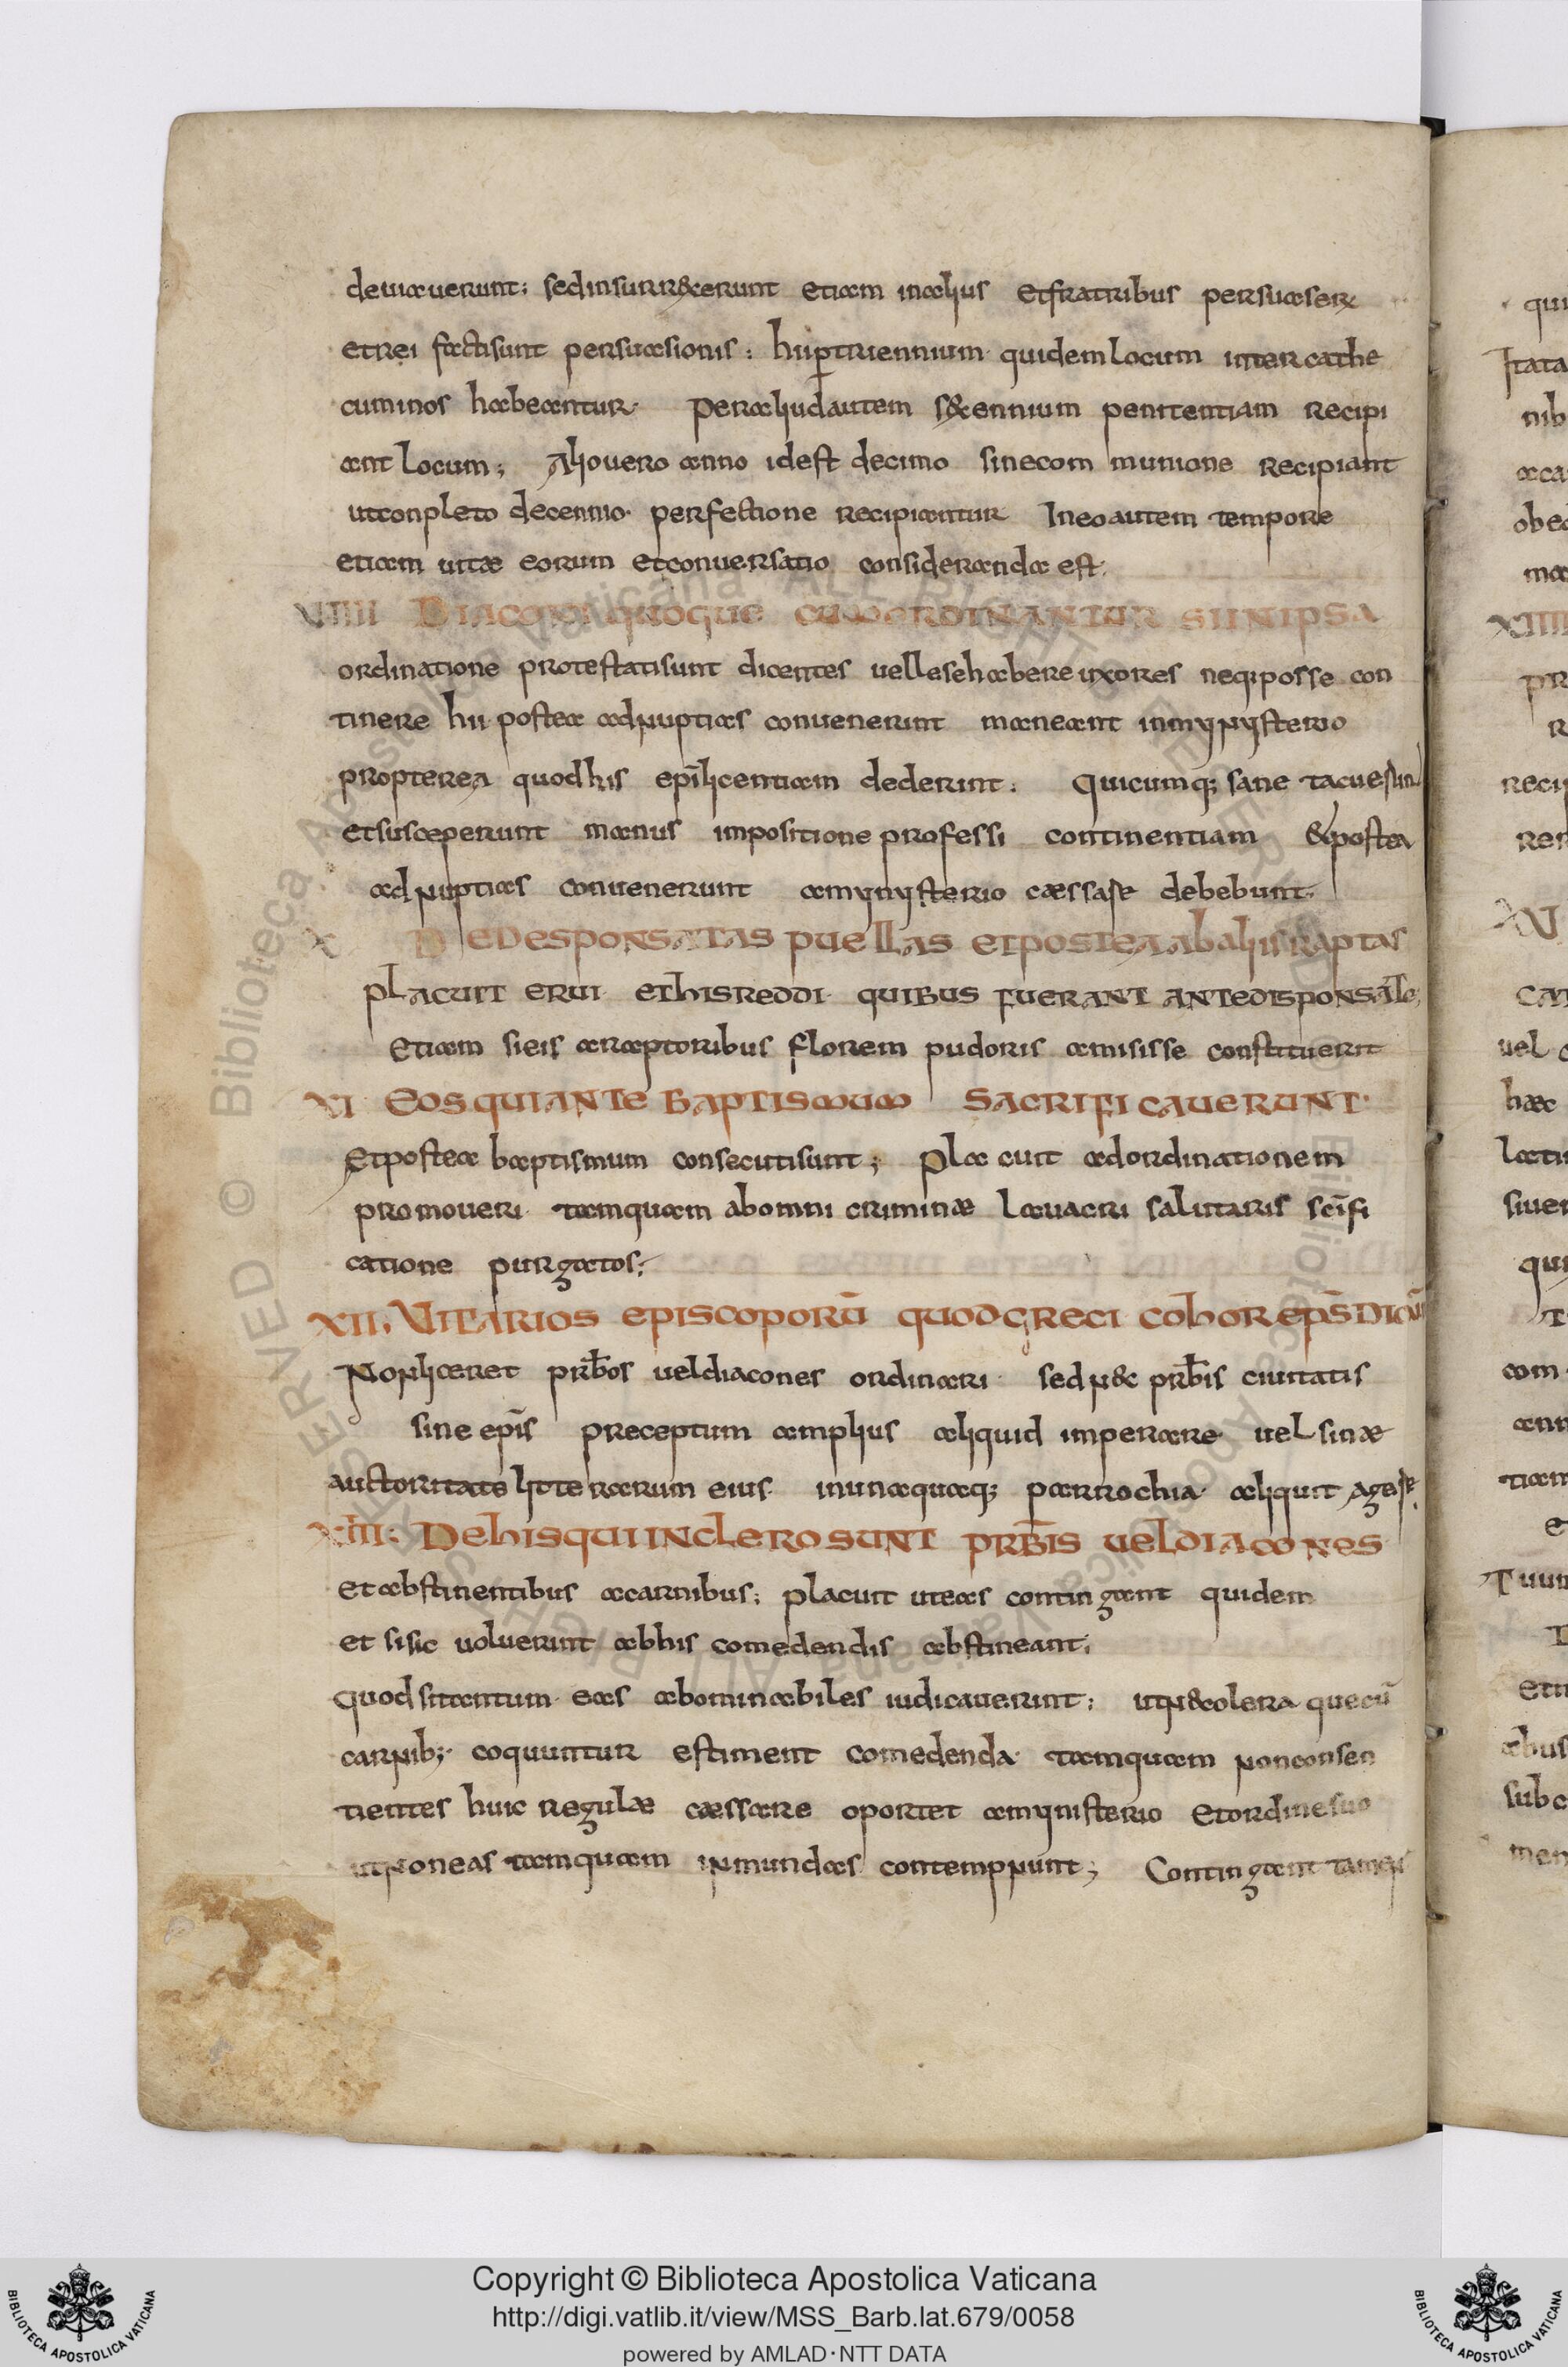 deuiauerunt; sed insurrexerunt etiam inalius et fratribus persuaser
et rei facti sunt persuasionis; hii per triennium quidem locum inter cathe
cuminos habeantur. Per aliud autem sexennium penitentiam recipi
ant locum; Alio uero anno id est decimo sine communione recipiant
ut conpleto decennio. perfectione recipiantur In eo autem tempore
etiam uitae eorum et conuersatio consideranda est.
VIIII Diaconi quoque cum ordinantur si in ipsa
ordinatione protestati sunt dicentes uelle se habere uxores neq; posse con
tinere hii postea ad nuptias conuenerint maneant in mynysterio
propterea quod his epīs licentiam dederint. Quicumq; sane tacuerun
et susceperunt manus impositione professi continentiam & postea
ad nuptias conuenerunt a mynysterio caessare debebunt.
X Dedesponsatas puellas et postea ab aliis raptas
placuit erui et his reddi quibus fuerant ante disponsate;
Etiam si eis a raptoribus florem pudoris amisisse constituerit
XI Eos qui ante baptismum sacrificauerunt.
Et postea baptismum consecuti sunt; Placuit ad ordinationem
promoueri tamquam ab omni criminae lauacri salutaris scīfi
catione purgatos;
XII. Uitarios episcoporū quod greci cohorepīs dicū
Non liceret prb̄os uel diacones ordinari sed n& prb̄is ciuitatis
sine epīs preceptum amplius aliquid imperare uel sinae
auctoritate litterarum eius in unaquaq; parrochia aliquit agere
XIII: De his qui in clero sunt prb̄is uel diacones
et abstinentibus a carnibus; placuit ut eas contingant quidem
et si sic uoluerint ab his comedendis abstineant;
Quod si tantum eas abominabiles iudicauerint; ut n& olera quecū
carnib; coquuntur estiment comedenda tamquam non consen
tientes huic regulae caessare oportet a mynisterio et ordine suo
ut non eas tamquam inmundas contempnunt; Contingant
Copyright © Biblioteca Apostolica Vaticana
http://digi.vatlib.it/view/MSS_Barb.lat.679/0058
powered by AMLAD·NTT DATA